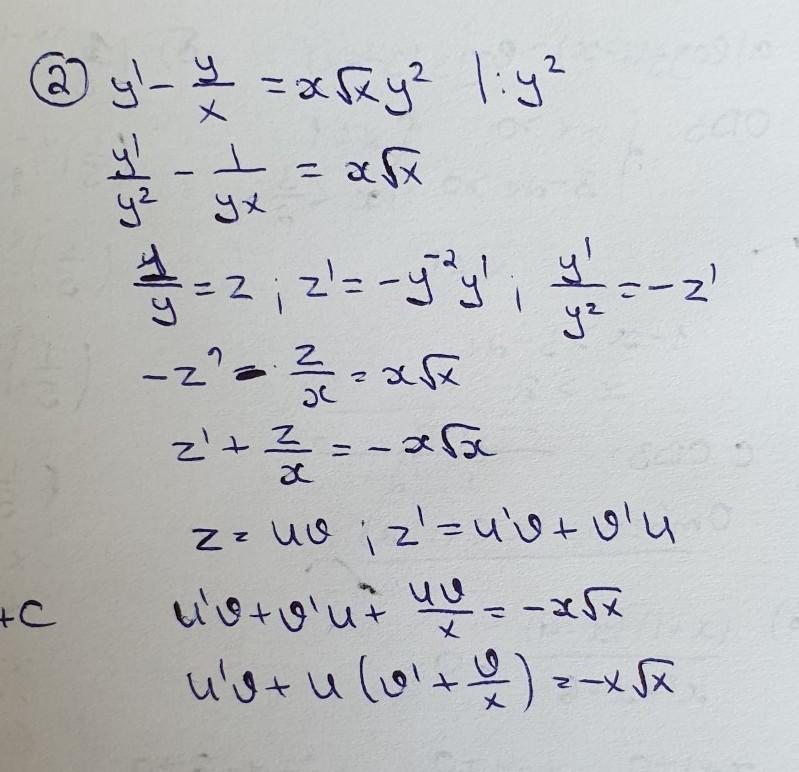 ② y' - y/x = x√x y² |: y²
y'/y² - 1/yx = x√x
1/y = z ; z' = -y⁻²y' ; y'/y² = -z'
-z' - z/x = x√x
z' + z/x = -x√x
z = uv ; z' = u'v + v'u
+C
u'v + v'u + uv/x = -x√x
u'v + u (v' + v/x) = -x√x